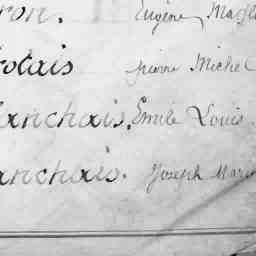 ron. Eugène
olais Pierre Michel
lanchais. Emile Louis
anchais. Joseph Marie